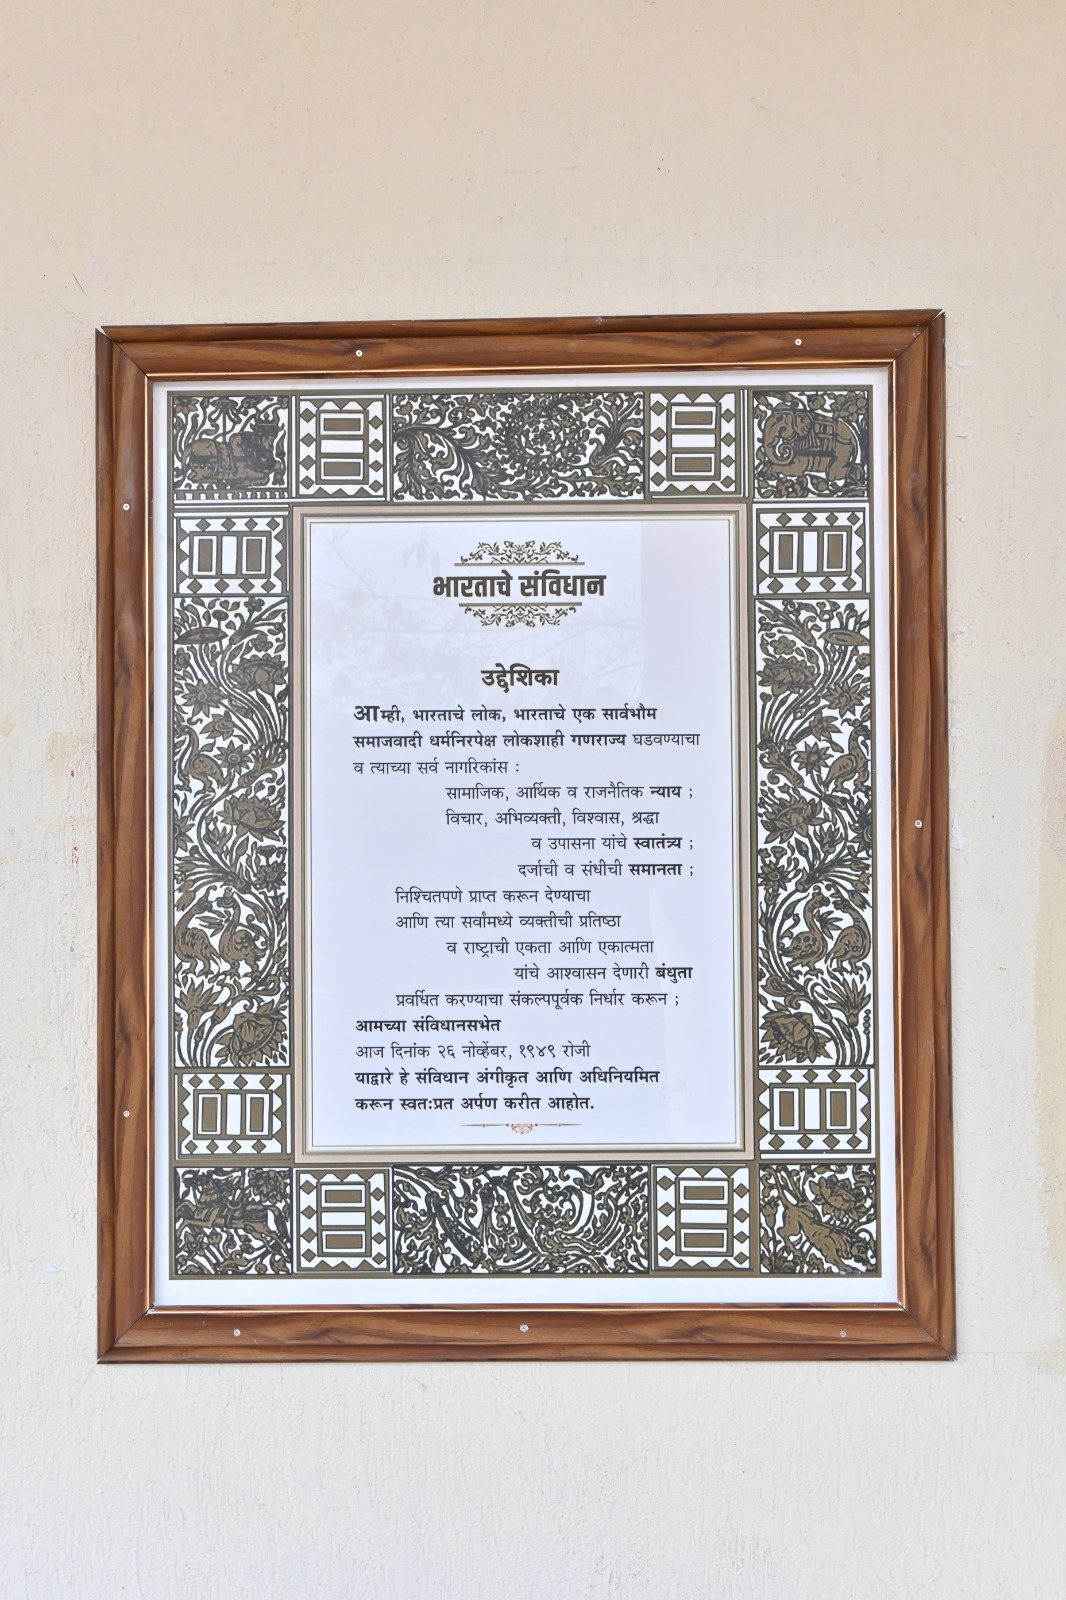 भारताचे संविधान
उद्देशिका
आम्ही, भारताचे लोक, भारताचे एक सार्वभौम
समाजवादी धर्मनिरपेक्ष लोकशाही गणराज्य घडवण्याचा
व त्याच्या सर्व नागरिकांस :
सामाजिक, आर्थिक व राजनैतिक न्याय ;
विचार, अभिव्यक्ती, विश्वास, श्रद्धा
व उपासना यांचे स्वातंत्र्य ;
दर्जाची व संधीची समानता ;
निश्चितपणे प्राप्त करून देण्याचा
आणि त्या सर्वांमध्ये व्यक्तीची प्रतिष्ठा
व राष्ट्राची एकता आणि एकात्मता
यांचे आश्वासन देणारी बंधुता
प्रवर्धित करण्याचा संकल्पपूर्वक निर्धार करून ;
आमच्या संविधानसभेत
आज दिनांक २६ नोव्हेंबर, १९४९ रोजी
याद्वारे हे संविधान अंगीकृत आणि अधिनियमित
करून स्वतःप्रत अर्पण करीत आहोत.